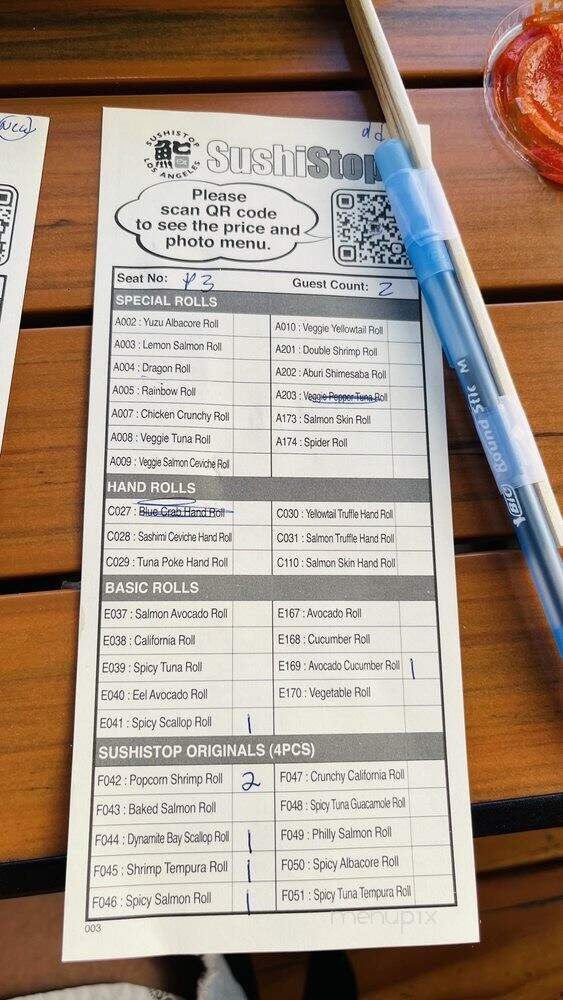 SUSHISTOP
LOS ANGELES
SushiStop
Please
scan QR code
to see the price and
photo menu.
Seat No: #3 Guest Count: 2
SPECIAL ROLLS
A002 : Yuzu Albacore Roll
A003 : Lemon Salmon Roll
A004 : Dragon Roll
A005 : Rainbow Roll
A007 : Chicken Crunchy Roll
A008 : Veggie Tuna Roll
A009 : Veggie Salmon Ceviche Roll
A010 : Veggie Yellowtail Roll
A201 : Double Shrimp Roll
A202 : Aburi Shimesaba Roll
A203 : Veggie Pepper Tuna Roll
A173 : Salmon Skin Roll
A174 : Spider Roll
HAND ROLLS
C027 : Blue Crab Hand Roll
C028 : Sashimi Ceviche Hand Roll
C029 : Tuna Poke Hand Roll
C030 : Yellowtail Truffle Hand Roll
C031 : Salmon Truffle Hand Roll
C110 : Salmon Skin Hand Roll
BASIC ROLLS
E037 : Salmon Avocado Roll
E038 : California Roll
E039 : Spicy Tuna Roll
E040 : Eel Avocado Roll
E041 : Spicy Scallop Roll 1
E167 : Avocado Roll
E168 : Cucumber Roll
E169 : Avocado Cucumber Roll 1
E170 : Vegetable Roll
SUSHISTOP ORIGINALS (4PCS)
F042 : Popcorn Shrimp Roll 2
F043 : Baked Salmon Roll
F044 : Dynamite Bay Scallop Roll 1
F045 : Shrimp Tempura Roll 1
F046 : Spicy Salmon Roll 1
F047 : Crunchy California Roll
F048 : Spicy Tuna Guacamole Roll
F049 : Philly Salmon Roll
F050 : Spicy Albacore Roll
F051 : Spicy Tuna Tempura Roll
003
menupix
BIC Round Stic M